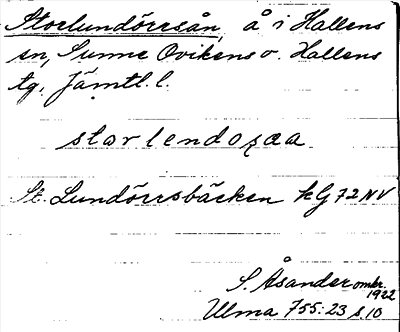 Storlundörrsån, å i Hallens
sn, Sunne Ovikens o. Hallens
tg, Jämtl. l.
starlendoṛaa
St. Lundörrsbäcken kG 72 NV
S. Åsander omkr.
1922
Ulma 755:23 s. 10